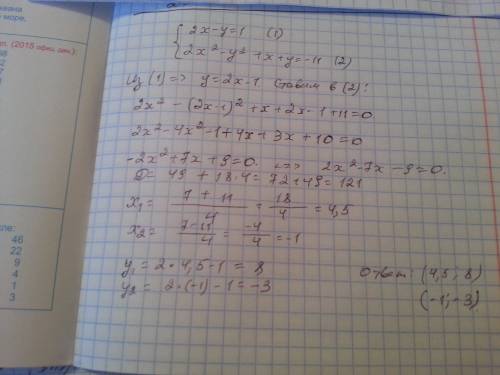 2x-y=1 (1)
2x²-y²+x+y=-11 (2)
Из (1) => y=2x-1 ставим в (2):
2x² - (2x-1)² + x + 2x - 1 + 11 = 0
2x² - 4x² - 1 + 4x + 3x + 10 = 0
-2x² + 7x + 9 = 0. <=> 2x² - 7x - 9 = 0.
D = 49 + 18·4 = 72 + 49 = 121
x₁ = (7 + 11)/4 = 18/4 = 4,5
x₂ = (7-11)/4 = -4/4 = -1
y₁ = 2·4,5-1 = 8
y₂ = 2·(-1) - 1 = -3
Ответ: (4,5; 8)
(-1; -3)
море.
(2015
46
22
9
4
1
3